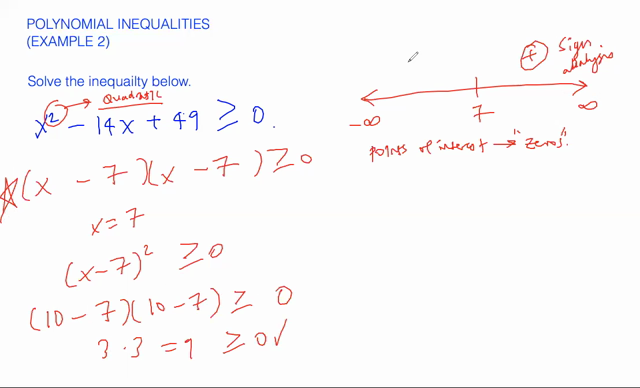 POLYNOMIAL INEQUALITIES
(EXAMPLE 2)
Solve the inequailty below.
Quadratic
x² - 14x + 49 ≥ 0.
(x - 7)(x - 7) ≥ 0
x = 7
(x - 7)² ≥ 0
(10 - 7)(10 - 7) ≥ 0
3 · 3 = 9 ≥ 0 ✓
+ Sign analysis
-∞ 7 ∞
points of interest → "zeros".